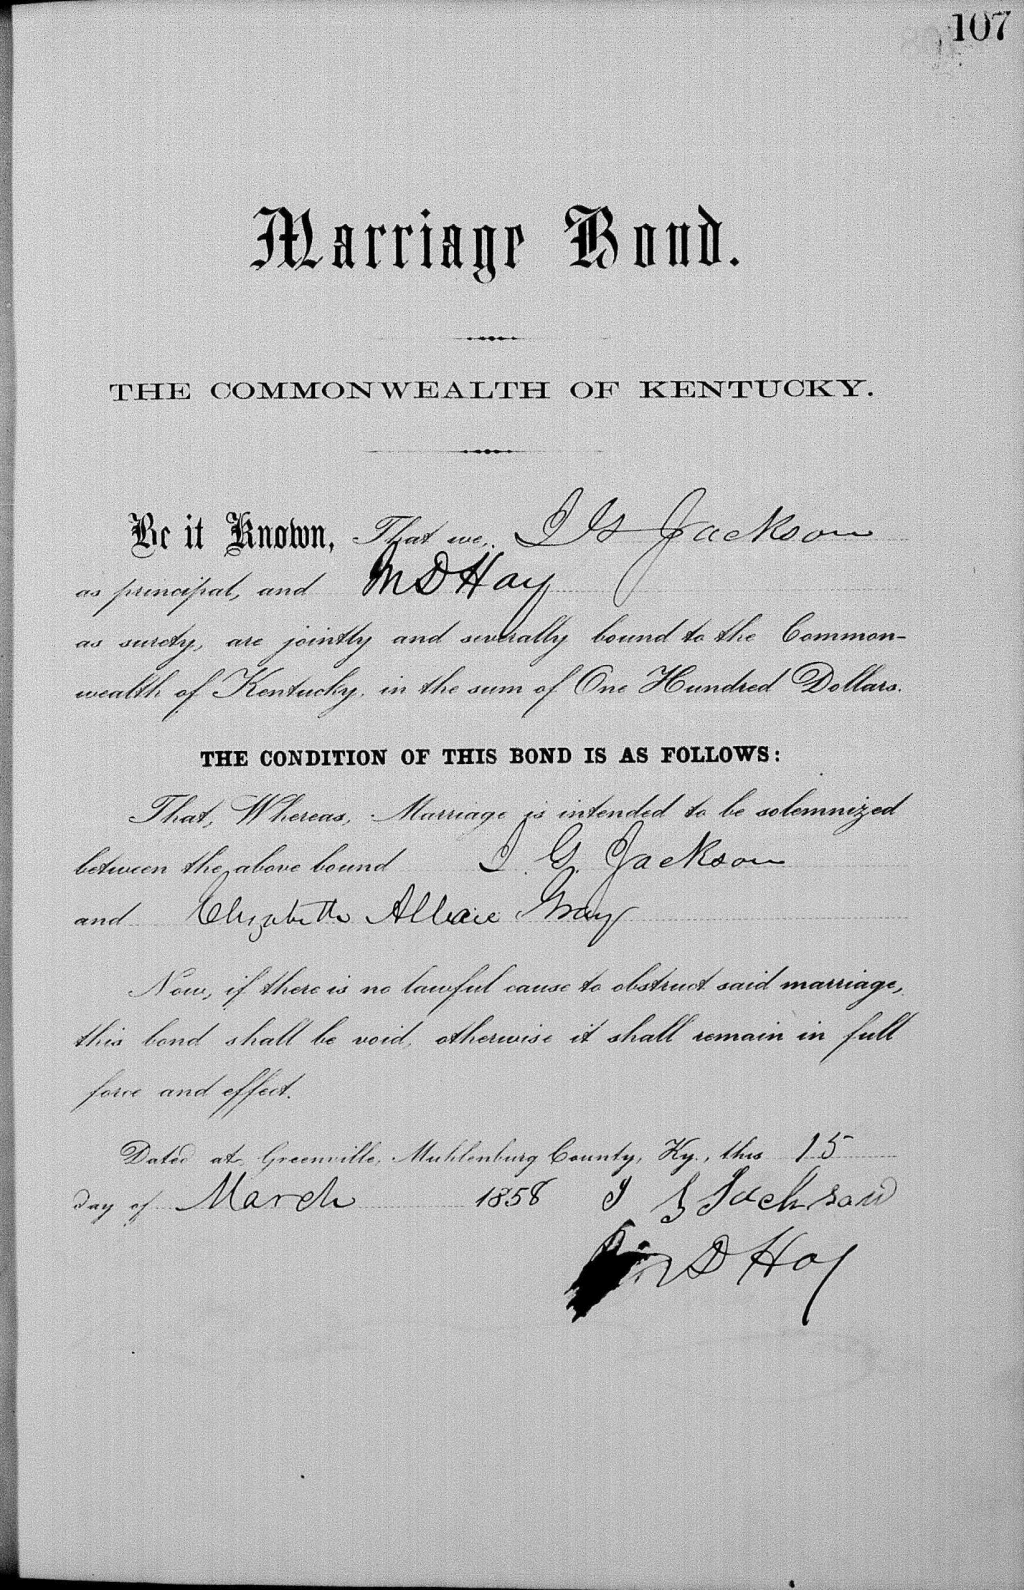 107
Marriage Bond.
THE COMMONWEALTH OF KENTUCKY.
Be it Known, That we, I G Jackson
as principal, and M D Hay
as surety, are jointly and severally bound to the Common-
wealth of Kentucky, in the sum of One Hundred Dollars.
THE CONDITION OF THIS BOND IS AS FOLLOWS:
That, Whereas, Marriage is intended to be solemnized
between the above bound I. G. Jackson
and Elizabeth Gray
Now, if there is no lawful cause to obstruct said marriage,
this bond shall be void, otherwise it shall remain in full
force and effect.
Dated at Greenville, Muhlenburg County, Ky., this 15
day of March 1858 I G Jackson
M D Hay